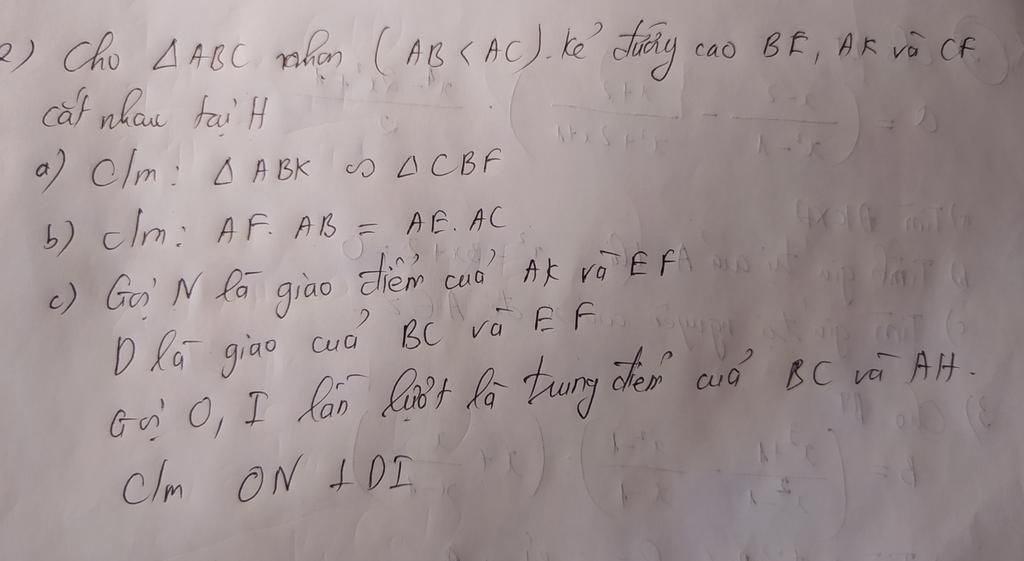 2) Cho Δ ABC nhọn ( AB < AC ). kẻ đường cao BE, AK và CF
cắt nhau tại H
a) C/m : Δ ABK ∽ Δ CBF
b) c/m : AF. AB = AE. AC
c) Gọi N là giao điểm cuả AK và EF
D là giao cuả BC và EF
Gọi O, I lần lượt là trung điểm cuả BC và AH.
C/m ON ⊥ DI